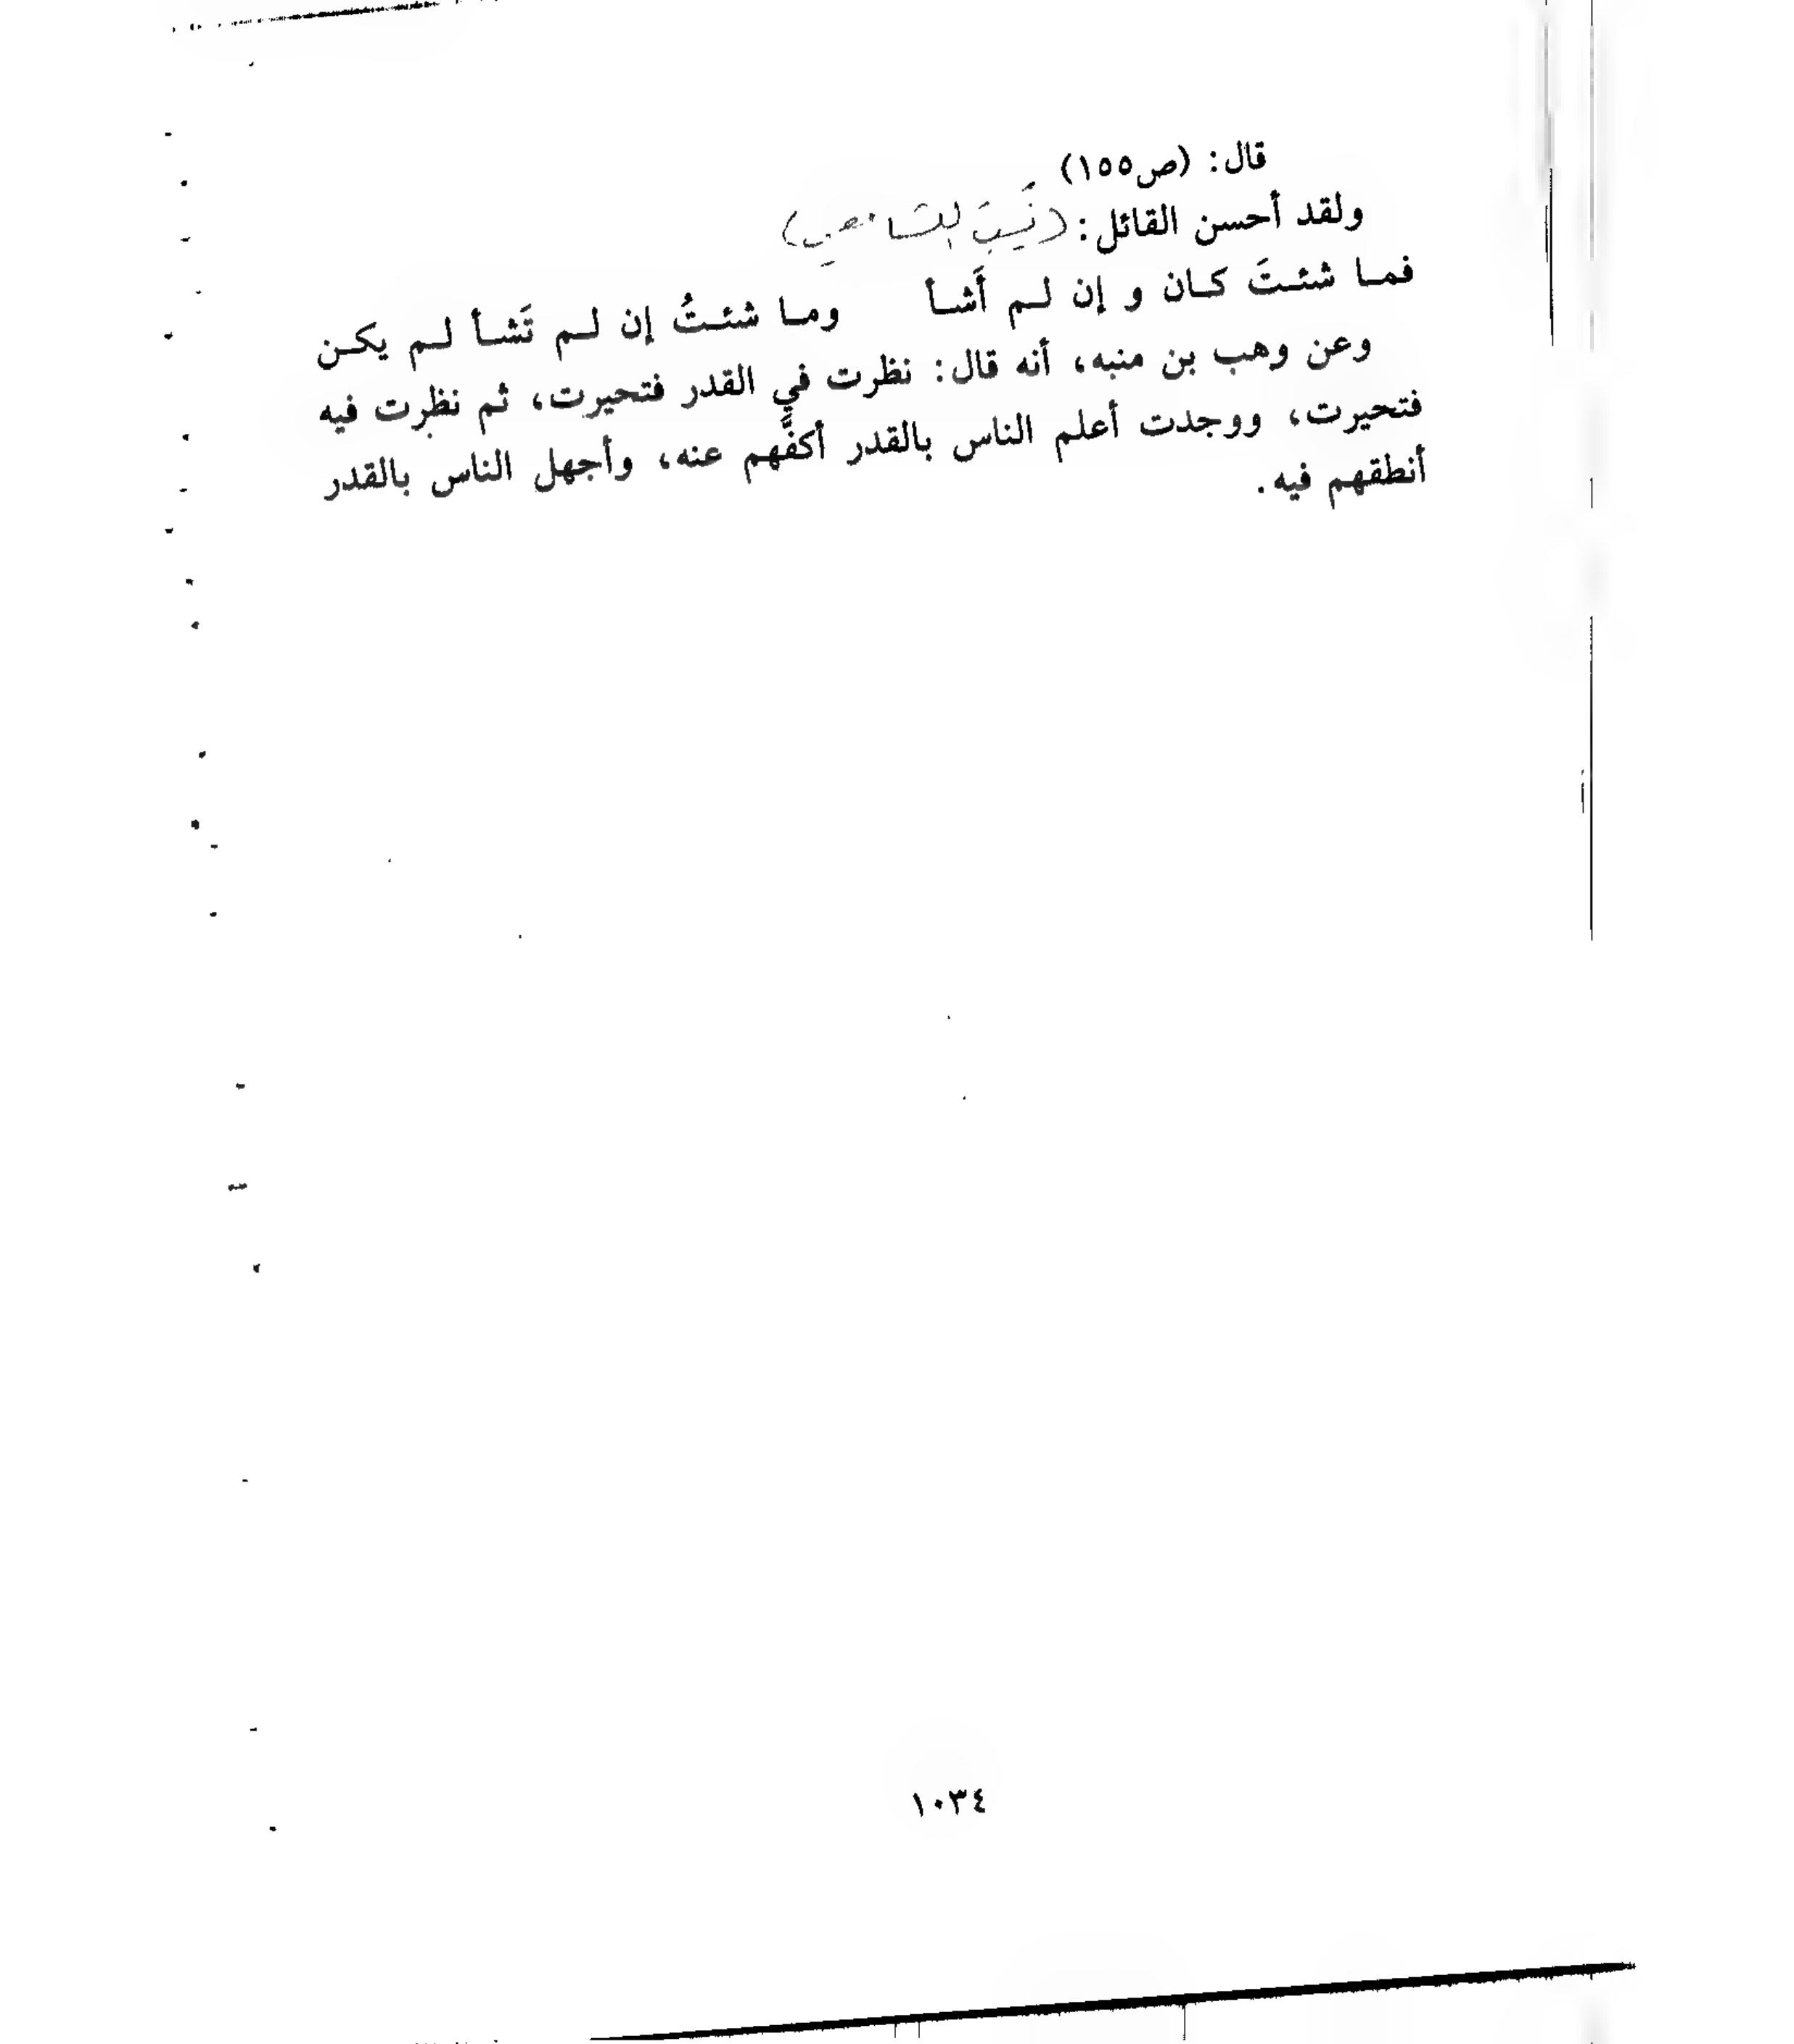 قال: (ص١٥٥)
ولقد أحسن القائل: (نُسِبَ للشافعي)
فمـا شئـتَ كـان و إن لـم أَشـأ ومـا شئـتُ إن لـم تَشـأ لـم يكـن
وعن وهب بن منبه، أنه قال: نظرت في القدر فتحيرت، ثم نظرت فيه
فتحيرت، ووجدت أعلم الناس بالقدر أكفَّهم عنه، وأجهل الناس بالقدر
أنطقهم فيه.
١٠٣٤